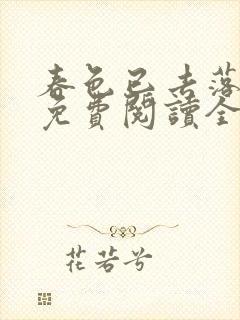 春色已去落
免費閱讀全
花若兮